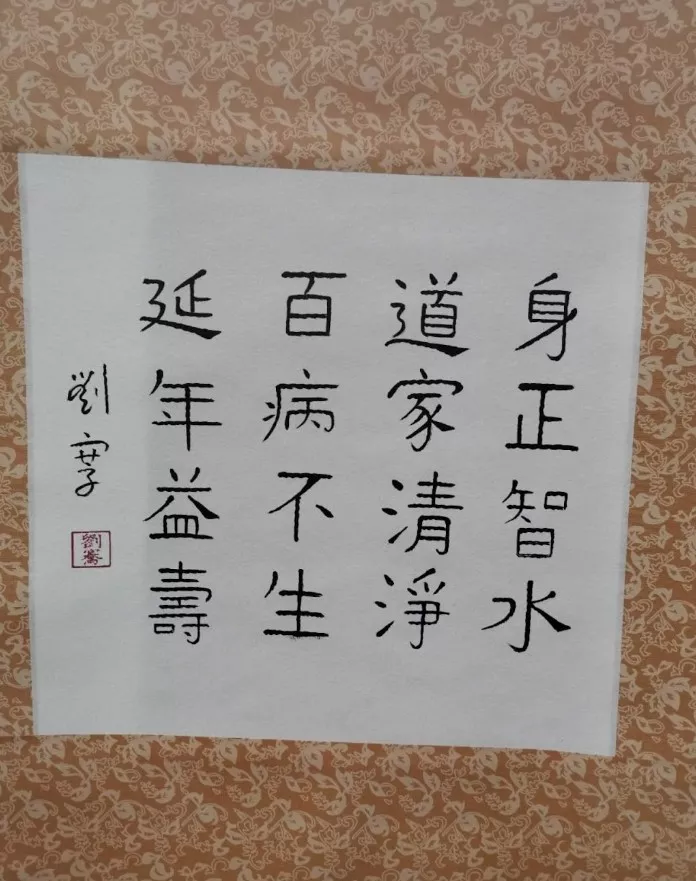 身正智水
道家清淨
百病不生
延年益壽
劉
劉